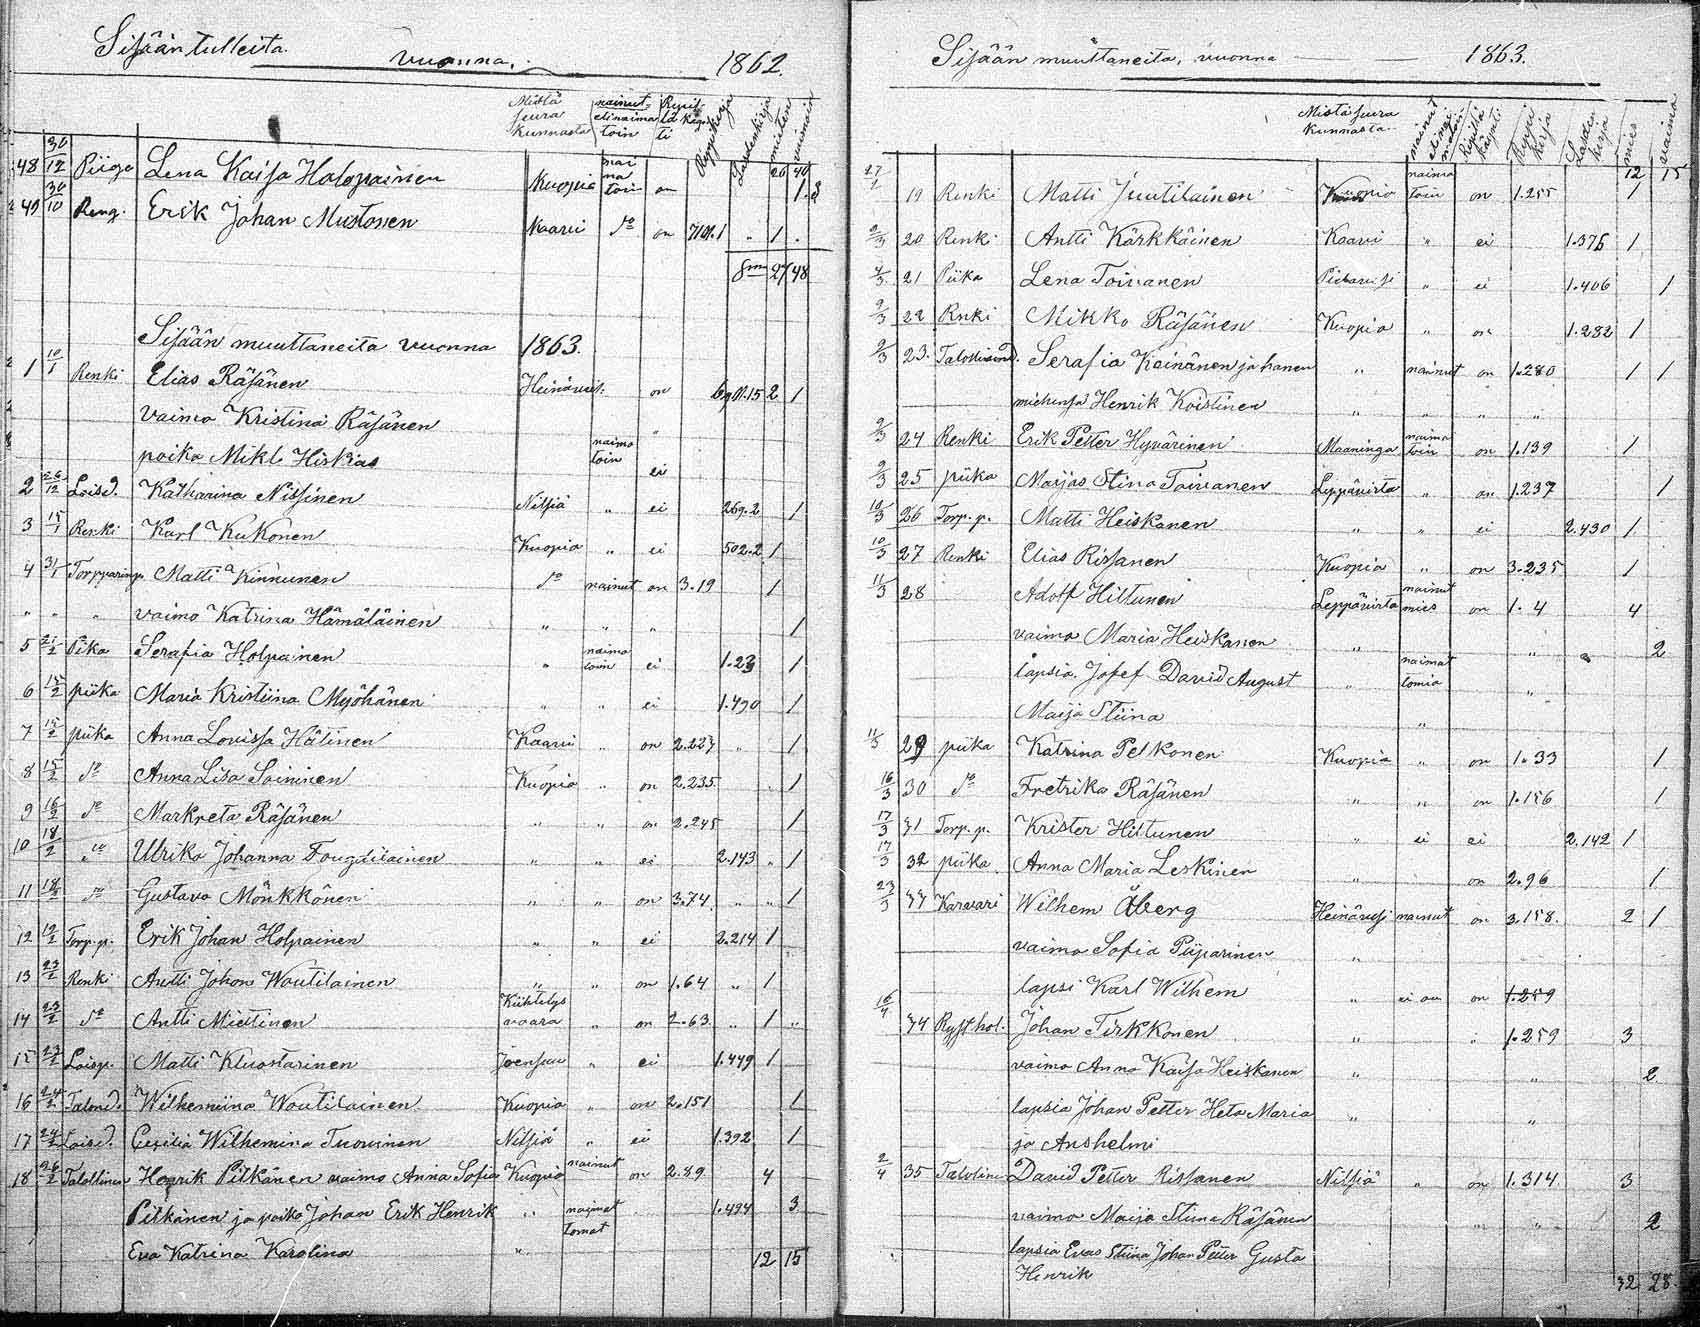 Sisään tulleita vuonna 1862.
Mistä seura kunnasta
nainut eli naimatoin
Rippikirja
Lastenkirja
miesten
vaimoin
26 40
48 30/12 Piiga Lena Kaisa Holopainen Kuopio naimatoin on 1.8
49 30/10 Reng. Erik Johan Mustonen Kaavi do on 1
Smm 27 48
Sisään muuttaneita vuonna 1863.
1 10/1 Renki Elias Räsänen on 2 1
vaimo Kristina Räsänen "
poika Mikl Hiskias naimatoin ei
2 26/12 Loisd. Katharina Nissinen Nilsiä " ei 269.2 1
3 15/1 Renki Karl Kukonen Kuopio " ei 502.2 1
4 31/1 Torpparinp. Matti Kinnunen do nainut on 3.19 1
" " " vaimo Katrina Hämäläinen " " " 1
5 21/2 Pika Serafia Holpainen " naimatoin ei 1.23 1
6 15/2 piika Maria Kristiina Myöhänen " " ei 1.490 1
7 15/2 piika Anna Lovissa Hätinen Kaavi " on 2.227 " 1
8 15/2 do Anna Lisa Soininen Kuopio " on 2.235 " 1
9 16/2 do Markreta Räsänen " " on 2.245 1
10 18/2 do Ulrika Johanna " " ei 2.143 " 1
11 18/2 do Gustava Mönkkönen " " on 3.74 " " 1
12 19/2 Torp.p. Erik Johan Holpainen " " ei 2.214 1
13 23/2 Renki Antti Johan Woutilainen " " on 1.64 " 1
14 23/2 do Antti Miettinen Kiihtelysvaara " on 2.63 " 1 "
15 23/2 Loisp. Matti Kluostarinen Joensuu " ei 1.449 1
16 24/2 Talond. Wilhemiina Woutilainen Kuopio " on 2.151 1
17 24/2 Loisd. Cesilia Wilhemina Tuovinen Nilsiä " ei 1.392 1
18 26/2 Talollinen Henrik Pitkänen vaimo Anna Sofia Kuopio nainut on 2.89 4
Pitkänen ja poika Johan Erik Henrik " naimattomat 1.494 3
Eva Katrina Karolina " 12 15
Sisään muuttaneita, vuonna 1863.
Mistä seura kunnasta
nainut eli naimatoin
Ripillä käynti
Rippi kirja
Lasden kirja
mies
vaimo
12 15
27/2 19 Renki Matti Juutilainen Kuopio naimatoin on 1.255 1
2/3 20 Renki Antti Kärkkäinen Kaavi " ei 1.376 1
4/3 21 Piika Lena Toivanen Pielavesi " ei 1.406 1
9/3 22 Renki Mikko Räsänen Kuopio " on 1.282 1
9/3 23. Serafia Keinänen ja hänen " nainut on 1.280 1 1
miehensä Henrik Koistinen " " " "
9/3 24 Renki Erik Petter Hyvärinen Maaninga naimatoin on 1.139 1
9/3 25 piika Maijas Stina Toivanen Leppävirta " on 1.237 1
10/3 26 Torp.p. Matti Heiskanen " " ei 2.430 1
10/3 27 Renki Elias Rissanen Kuopio " on 3.235 1
11/3 28 Adolf Hiltunen Leppävirta nainut mies on 1.4 4
vaimo Maria Heiskanen " " 2
lapsia. Josef David August " naimattomia "
Maija Stiina "
11/3 29 piika Katrina Pelkonen Kuopio " on 1.33 1
16/3 30 do Fretrika Räsänen " " on 1.156 1
17/3 31 Torp.p. Krister Hiltunen " ei ei 2.142 1
17/3 32 piika Anna Maria Leskinen " on 2.96 1
23/3 33 Karvari Wilhem Åberg Heinävesi nainut on 3.158. 2 1
vaimo Sofia Piiparinen "
lapsi Karl Wilhem " ei on on 1.259
16/4 34 Johan Tirkkonen " " 1.259 3
vaimo Anna Kaisa Heiskanen " " 2
lapsia Johan Petter Heta Maria " "
ja Anshelmi
2/4 35 Talolinen David Petter Rissanen Nilsiä " on 1.314 3
vaimo Maija Stiina Räsänen " " 2
lapsia Evas Stiina Johan Petter Gusta
Henrik 32 28.